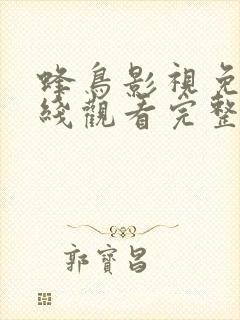 蜂鳥影視免
綫觀看完整
郭寶昌